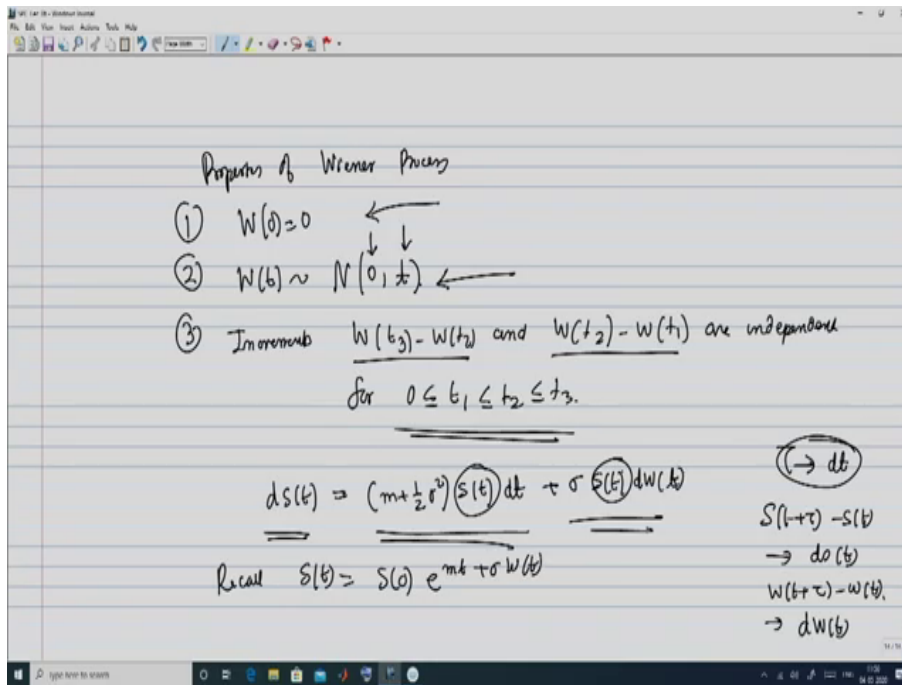 File Edit View Insert Actions Tools Help
Page Width
Properties of Wiener Process
① W(0)=0
② W(t) ~ N(0, t).
③ Increments W(t₃) - W(t₂) and W(t₂) - W(t₁) are independent
for 0 ≤ t₁ ≤ t₂ ≤ t₃.
dS(t) = (m+½σ²) S(t) dt + σ S(t) dW(t)
Recall S(t) = S(0) e^{mt + σW(t)}
τ → dt
S(t+τ) - S(t)
→ dS(t)
W(t+τ) - W(t).
→ dW(t)
Type here to search
11:56
04 03 2020